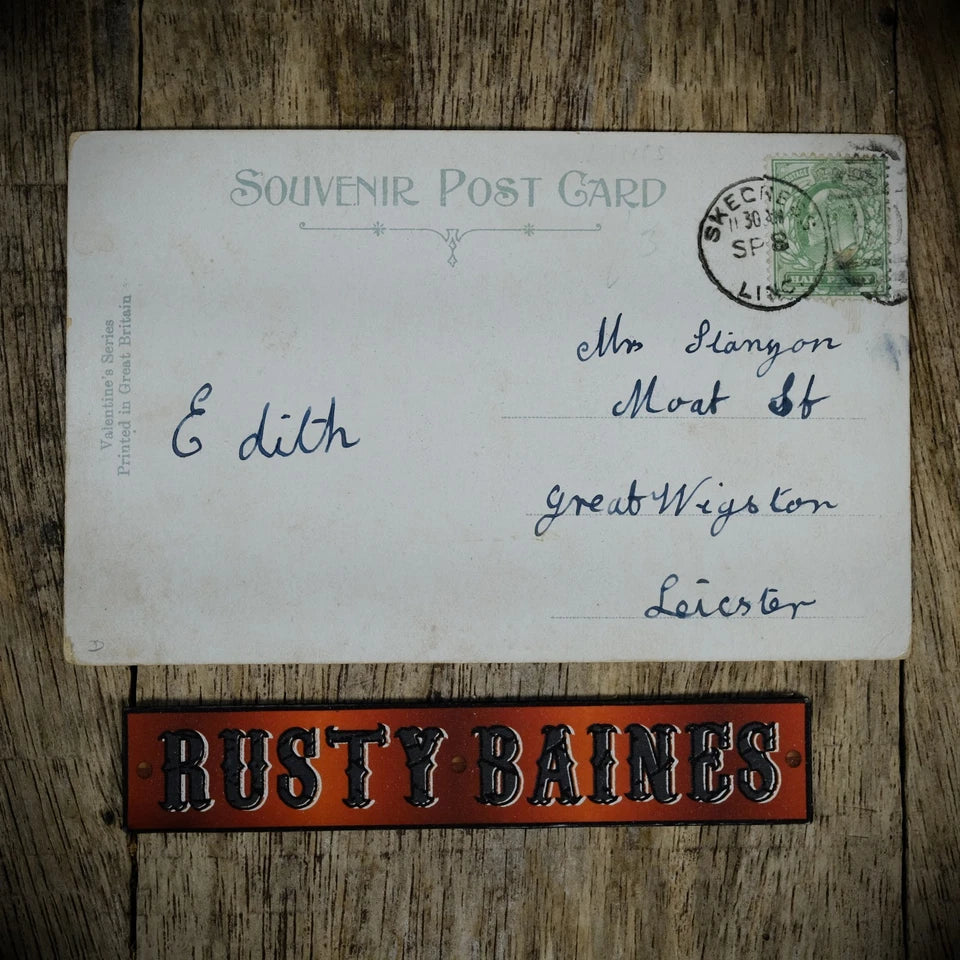 SOUVENIR POST CARD
SKEGNESS
11 30 AM
SP 8
LINC
HALF
Valentine's Series
Printed in Great Britain
Mrs Stanyon
Moat St
Edith
Great Wigston
Leicster
D
RUSTY BAINES